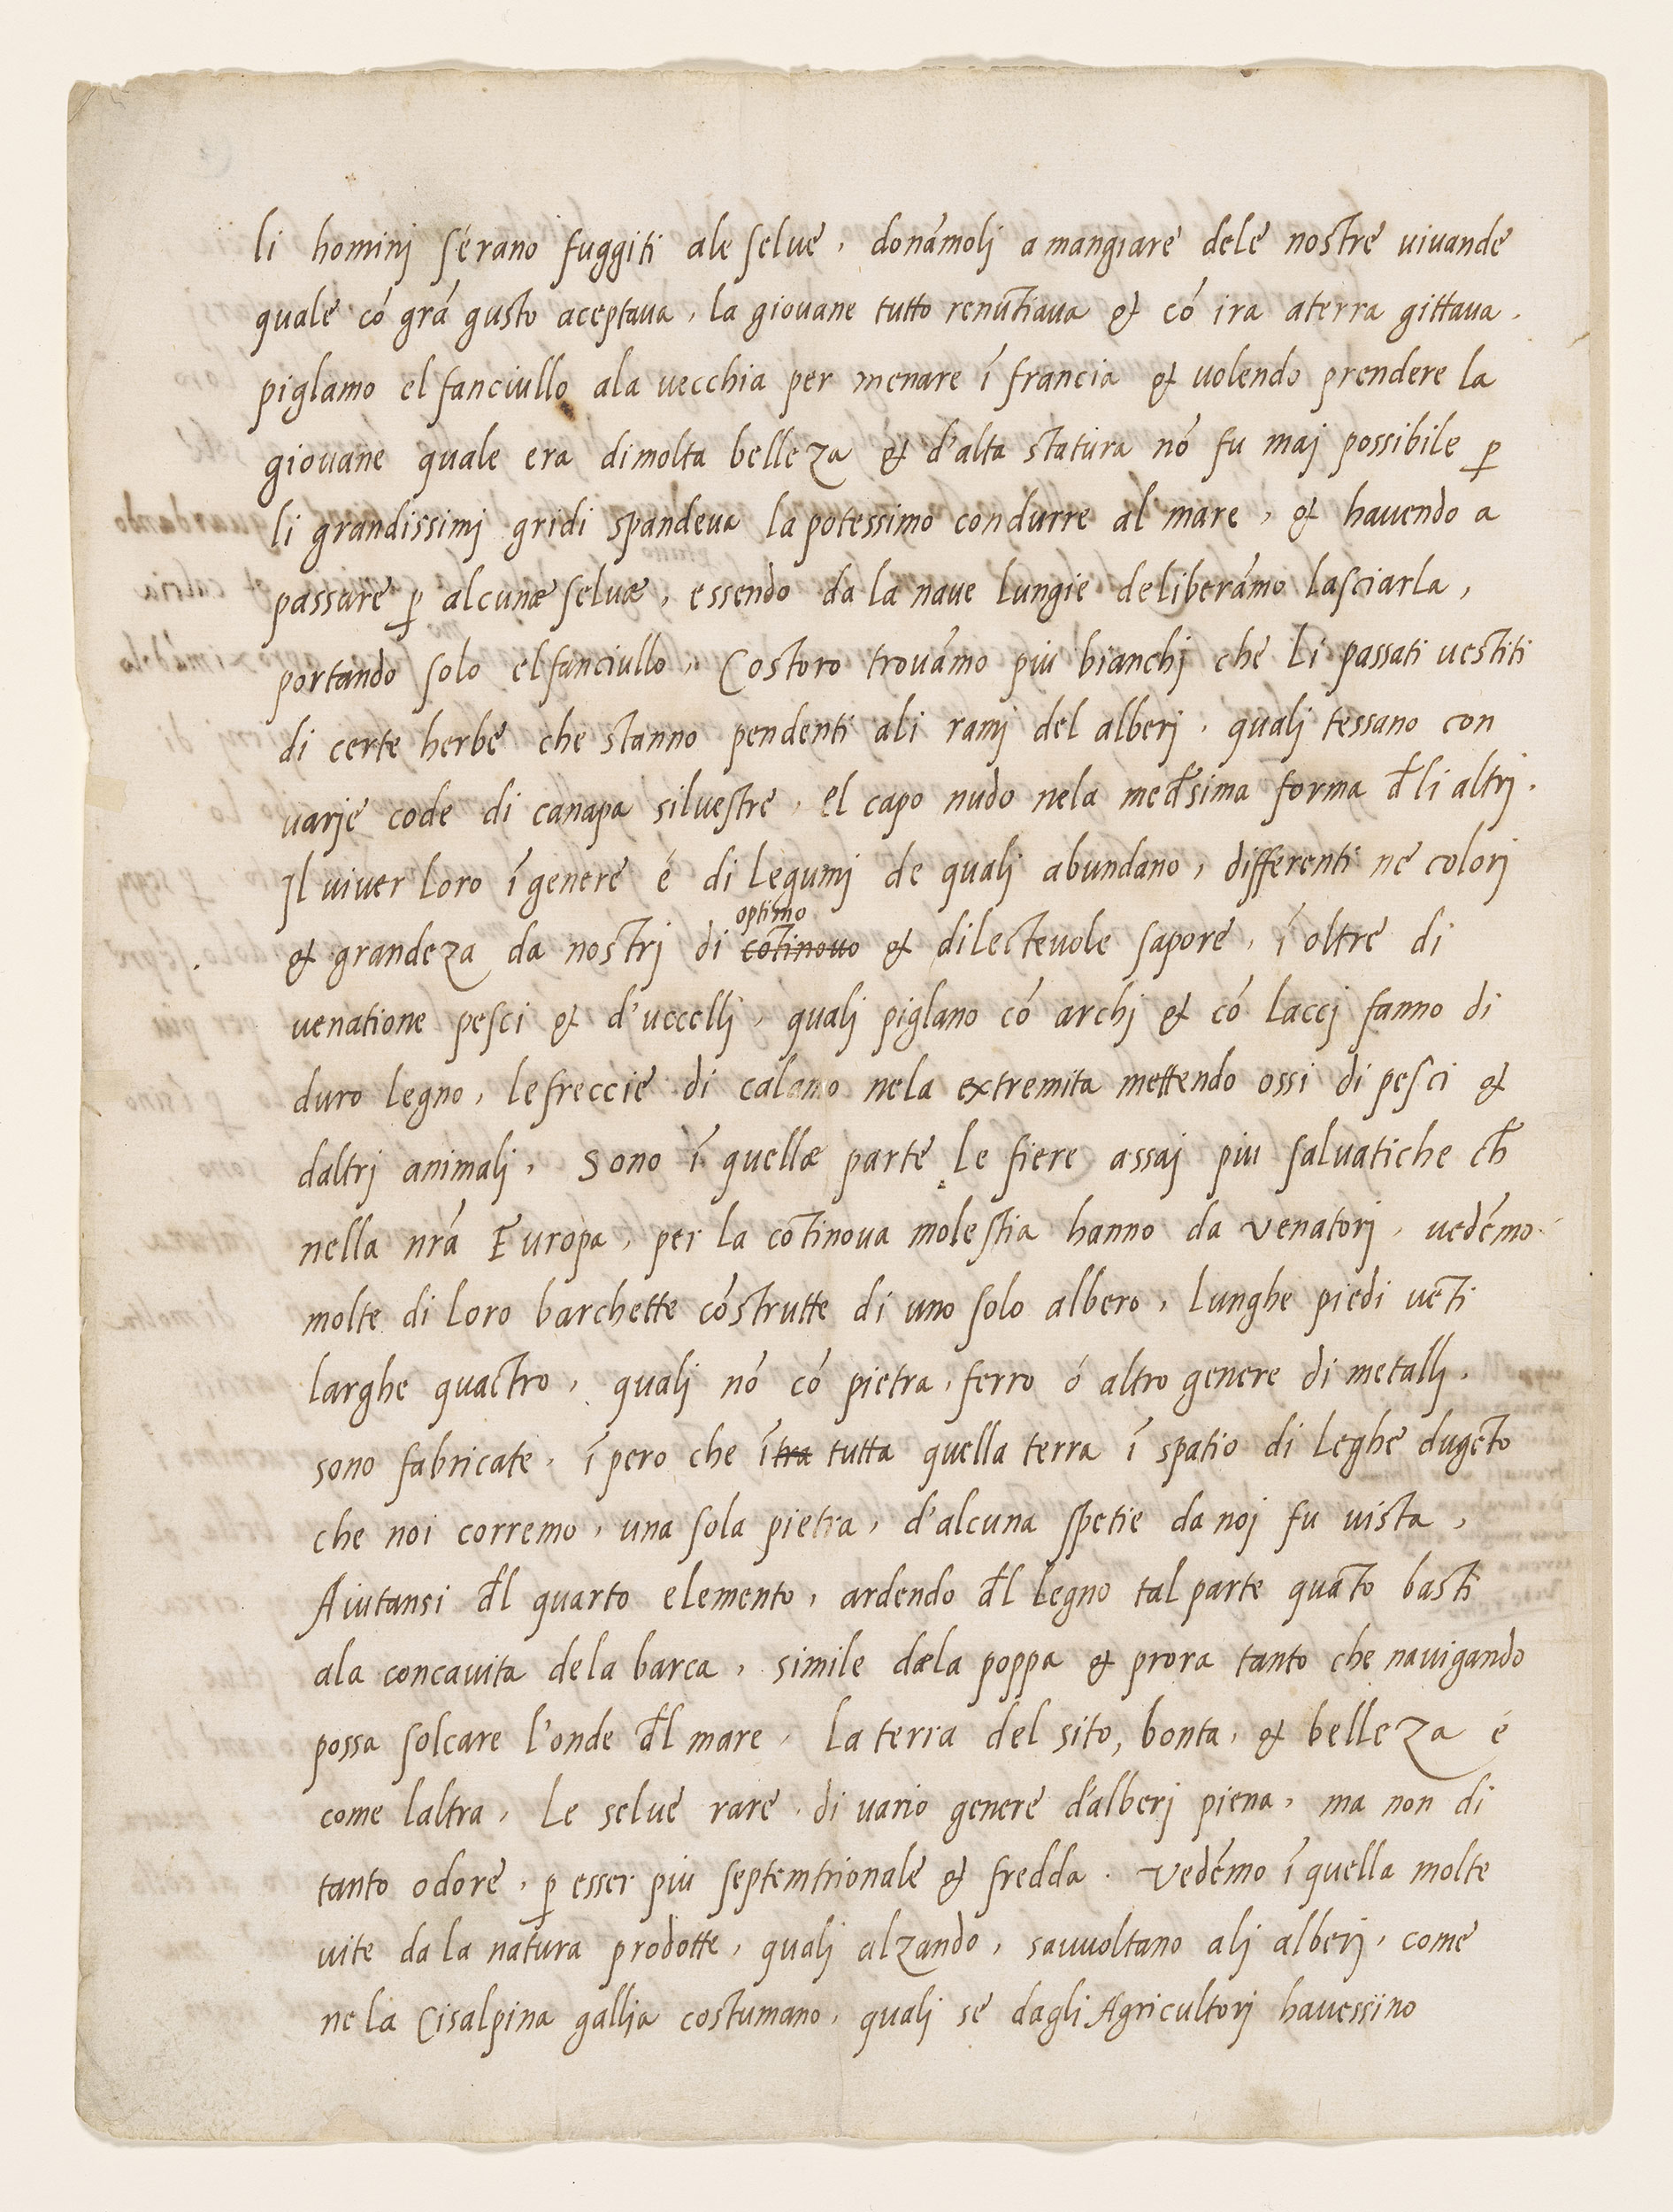 li hominj sérano fuggiti ale selue, donámolj a mangiare dele nostre uiuande
quale có grá gusto aceptaua, la giouane tutto renūtiaua & có ira aterra gittaua.
piglamo el fanciullo ala vecchia per menare ī francia & uolendo prendere la
giouane quale era dimolta belleza & d'alta statura nó fu maj possibile ꝑ
li grandissimj gridi spandeua la potessimo condurre al mare, & hauendo a
passare ꝑ alcunæ seluæ, essendo da la naue lungie deliberámo lasciarla,
portando solo elfanciullo, Costoro trouámo piu bianchj che li passati uestiti
di certe herbe che stanno pendenti ali ramj del alberj, qualj tessano con
varje code di canapa siluestre, el capo nudo nela med̄sima forma d̄li altrj.
Il uiuer loro ī genere é di legumj de qualj abundano, differenti ne colorj
optimo
& grandeza da nostrj di cōtinouo & dilecteuole sapore, ī oltre di
uenatione pesci & d'uccellj, qualj piglano có archj & có laccj fanno di
duro legno, lefreccie di calamo nela extremita mettendo ossi di pesci &
daltrj animalj, Sono ī quellæ parte le fiere assaj piu saluatiche ch̄
nella nrá Europa, per la cōtinoua molestia hanno da venatorj, uedémo
molte di loro barchette cóstrutte di uno solo albero, lunghe piedi uēti
larghe quactro, qualj nó có pietra, ferro ó altro genere di metallj.
sono fabricate, ī pero che ītra tutta quella terra ī spatio di leghe dugēto
che noi corremo, una sola pietra, d'alcuna spetie da noj fu uista,
Aiutansi d̄l quarto elemento, ardendo d̄l legno tal parte quāto basti
ala concauita dela barca, simile dæla poppa & prora tanto che nauigando
possa solcare l'onde d̄l mare, la terra del sito, bonta, & belleza é
come laltra, le selue rare, di uario genere d'alberj piena, ma non di
tanto odore, ꝑ esser piu septemtrionale & fredda. Vedémo ī quella molte
uite da la natura prodotte, qualj alzando, sauuoltano alj alberj, come
ne la Cisalpina gallia costumano, qualj se dagli Agricultorj hauessino